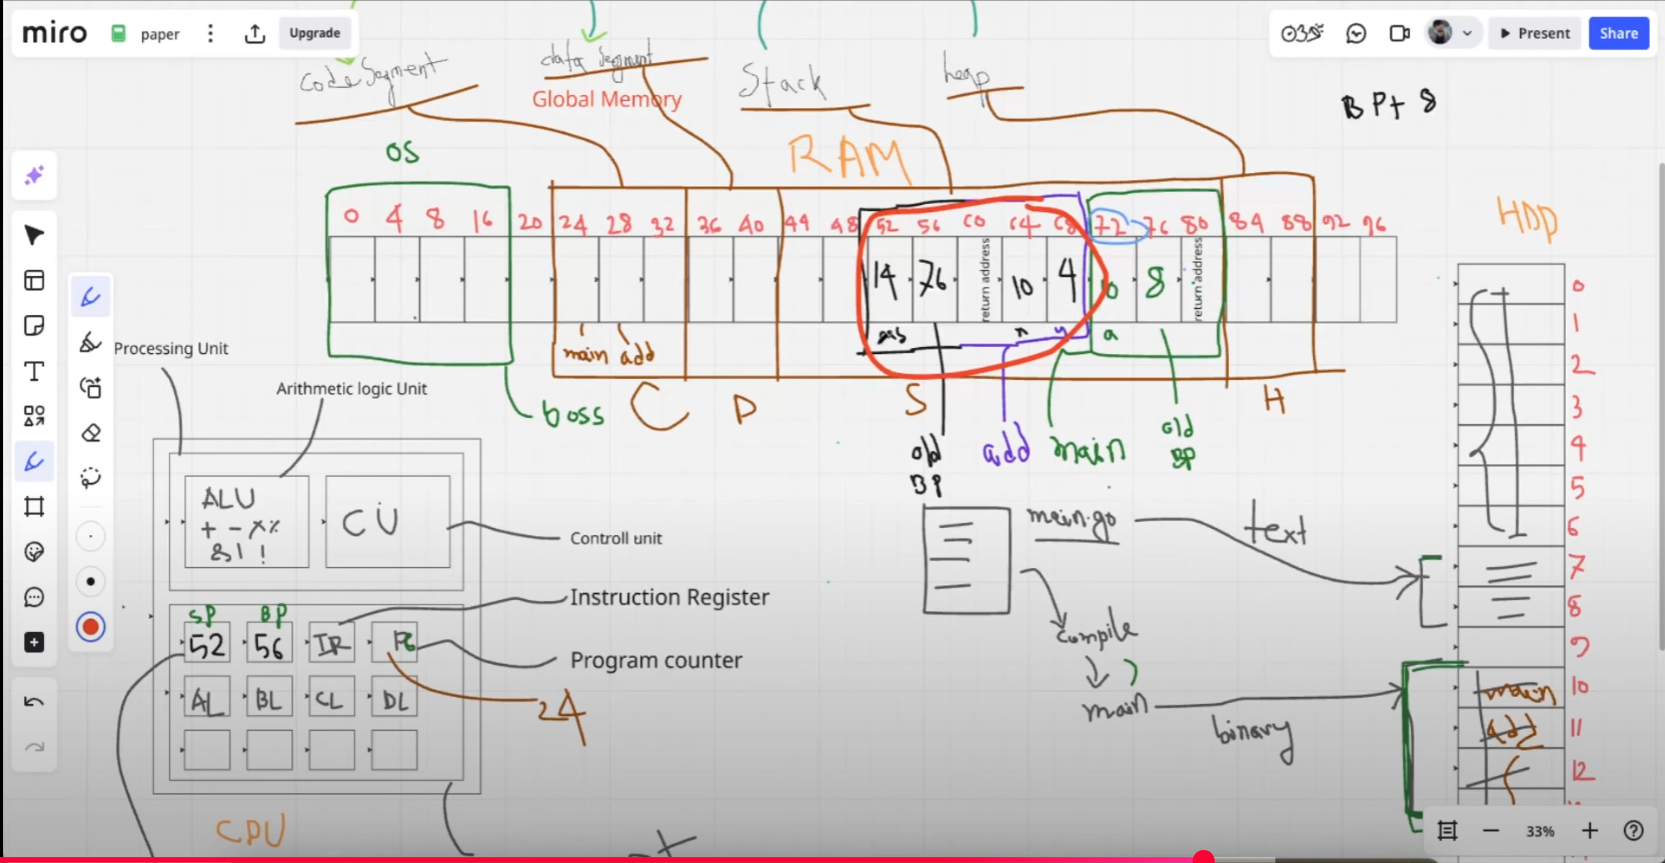 miro
paper
Upgrade
Present
Share
code Segment
data Segment
Global Memory
Stack
heap
BP+ 8
OS
RAM
HDD
0 4 8 16 20 24 28 32 36 40 44 48 52 56 60 64 68 72 76 80 84 88 92 96
14 76 return address 10 4 10 8 return address
main add
res x y a
boss
C D S H
old BP
add
main
old BP
Processing Unit
Arithmetic logic Unit
ALU
+ - × %
& | !
CU
Controll unit
SP BP
52 56 IR PC
Instruction Register
Program counter
AL BL CL DL
24
CPU
main.go
text
compile
main
binary
0
1
2
3
4
5
6
7
8
9
main 10
add 11
12
33%